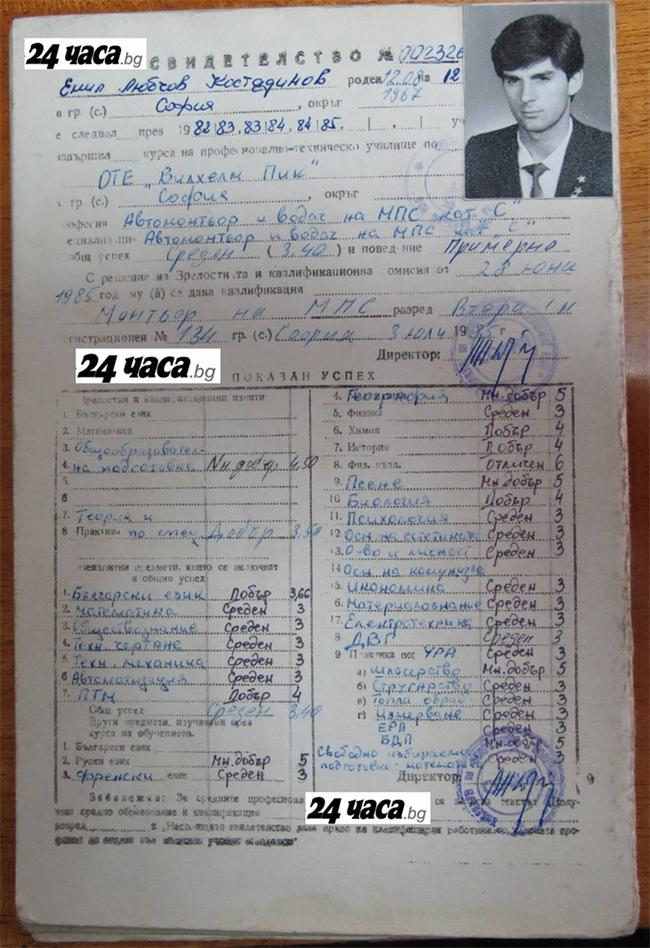 24 часа.bg
СВИДЕТЕЛСТВО № 002326
Емил Любчов Костадинов роден 12.08 на 12
в гр (с.) София, окръг 1967
е следвал през 1982/83, 83/84, 84/85,
завършил курса на професионално-техническо училище по
ОТЕ „Вилхелм Пик"
в гр. (с.) София, окръг
професия Автомонтьор и водач на МПС кат. „С"
специалност Автомонтьор и водач на МПС кат. „С"
общ успех Среден (3.40) и поведение Примерно
С решение на Зрелостната и квалификационна комисия от 28 юни
1985 год му (ѝ) се дава квалификация
Монтьор на МПС разред Втори
Регистрационен № 134 гр. (с.) София 3 юли 1985 г
Директор:
24 часа.bg
ПОКАЗАН УСПЕХ
Зрелостни и квалификационни изпити
1. Български език
2. Математика
3. Общообразовател-
4. на подготовка Мн. добър 4,50
5.
6
7. Теория и
8 Практика по спец. Добър 3,50
Неизпитни предмети, които се включват
в общия успех
1. Български език Добър 3,66
2. Математика Среден 3
3. Обществознание Среден 3
4. Техн. чертане Среден 3
5. Техн. механика Среден 3
6 Автоматизация Среден 3
7. ПТМ Добър 4
Общ успех Среден 3,40
Други предмети, изучавани през
курса на обучението.
1. Български език
2. Руски език Мн. добър 5
3. Френски език Среден 3
4. География Мн. добър 5
5. Физика Среден 3
6. Химия Добър 4
7. История Добър 4
8. Физ. възп. Отличен 6
9. Пеене Мн. добър 5
10 Биология Добър 4
11. Психология Среден 3
12 Осн на естетиката Среден 3
13. О-во и личност Среден 3
14 Осн на комунизма
15. Икономика Среден 3
16. Материалознание Среден 3
17. Електротехника Среден 3
18 ДВГ Среден 3
19 Практика по: УРА Среден 3
а) Шлосерство Мн. добър 5
б) Стругарство Среден 3
в) Топла обраб. Среден 3
г) Измерване Среден 3
ЕРА Среден 3
БДП Мн. добър 5
Свободно избираема Среден 3
подготовка - математ.
Директор
24 часа.bg
Забележка: За средните професио